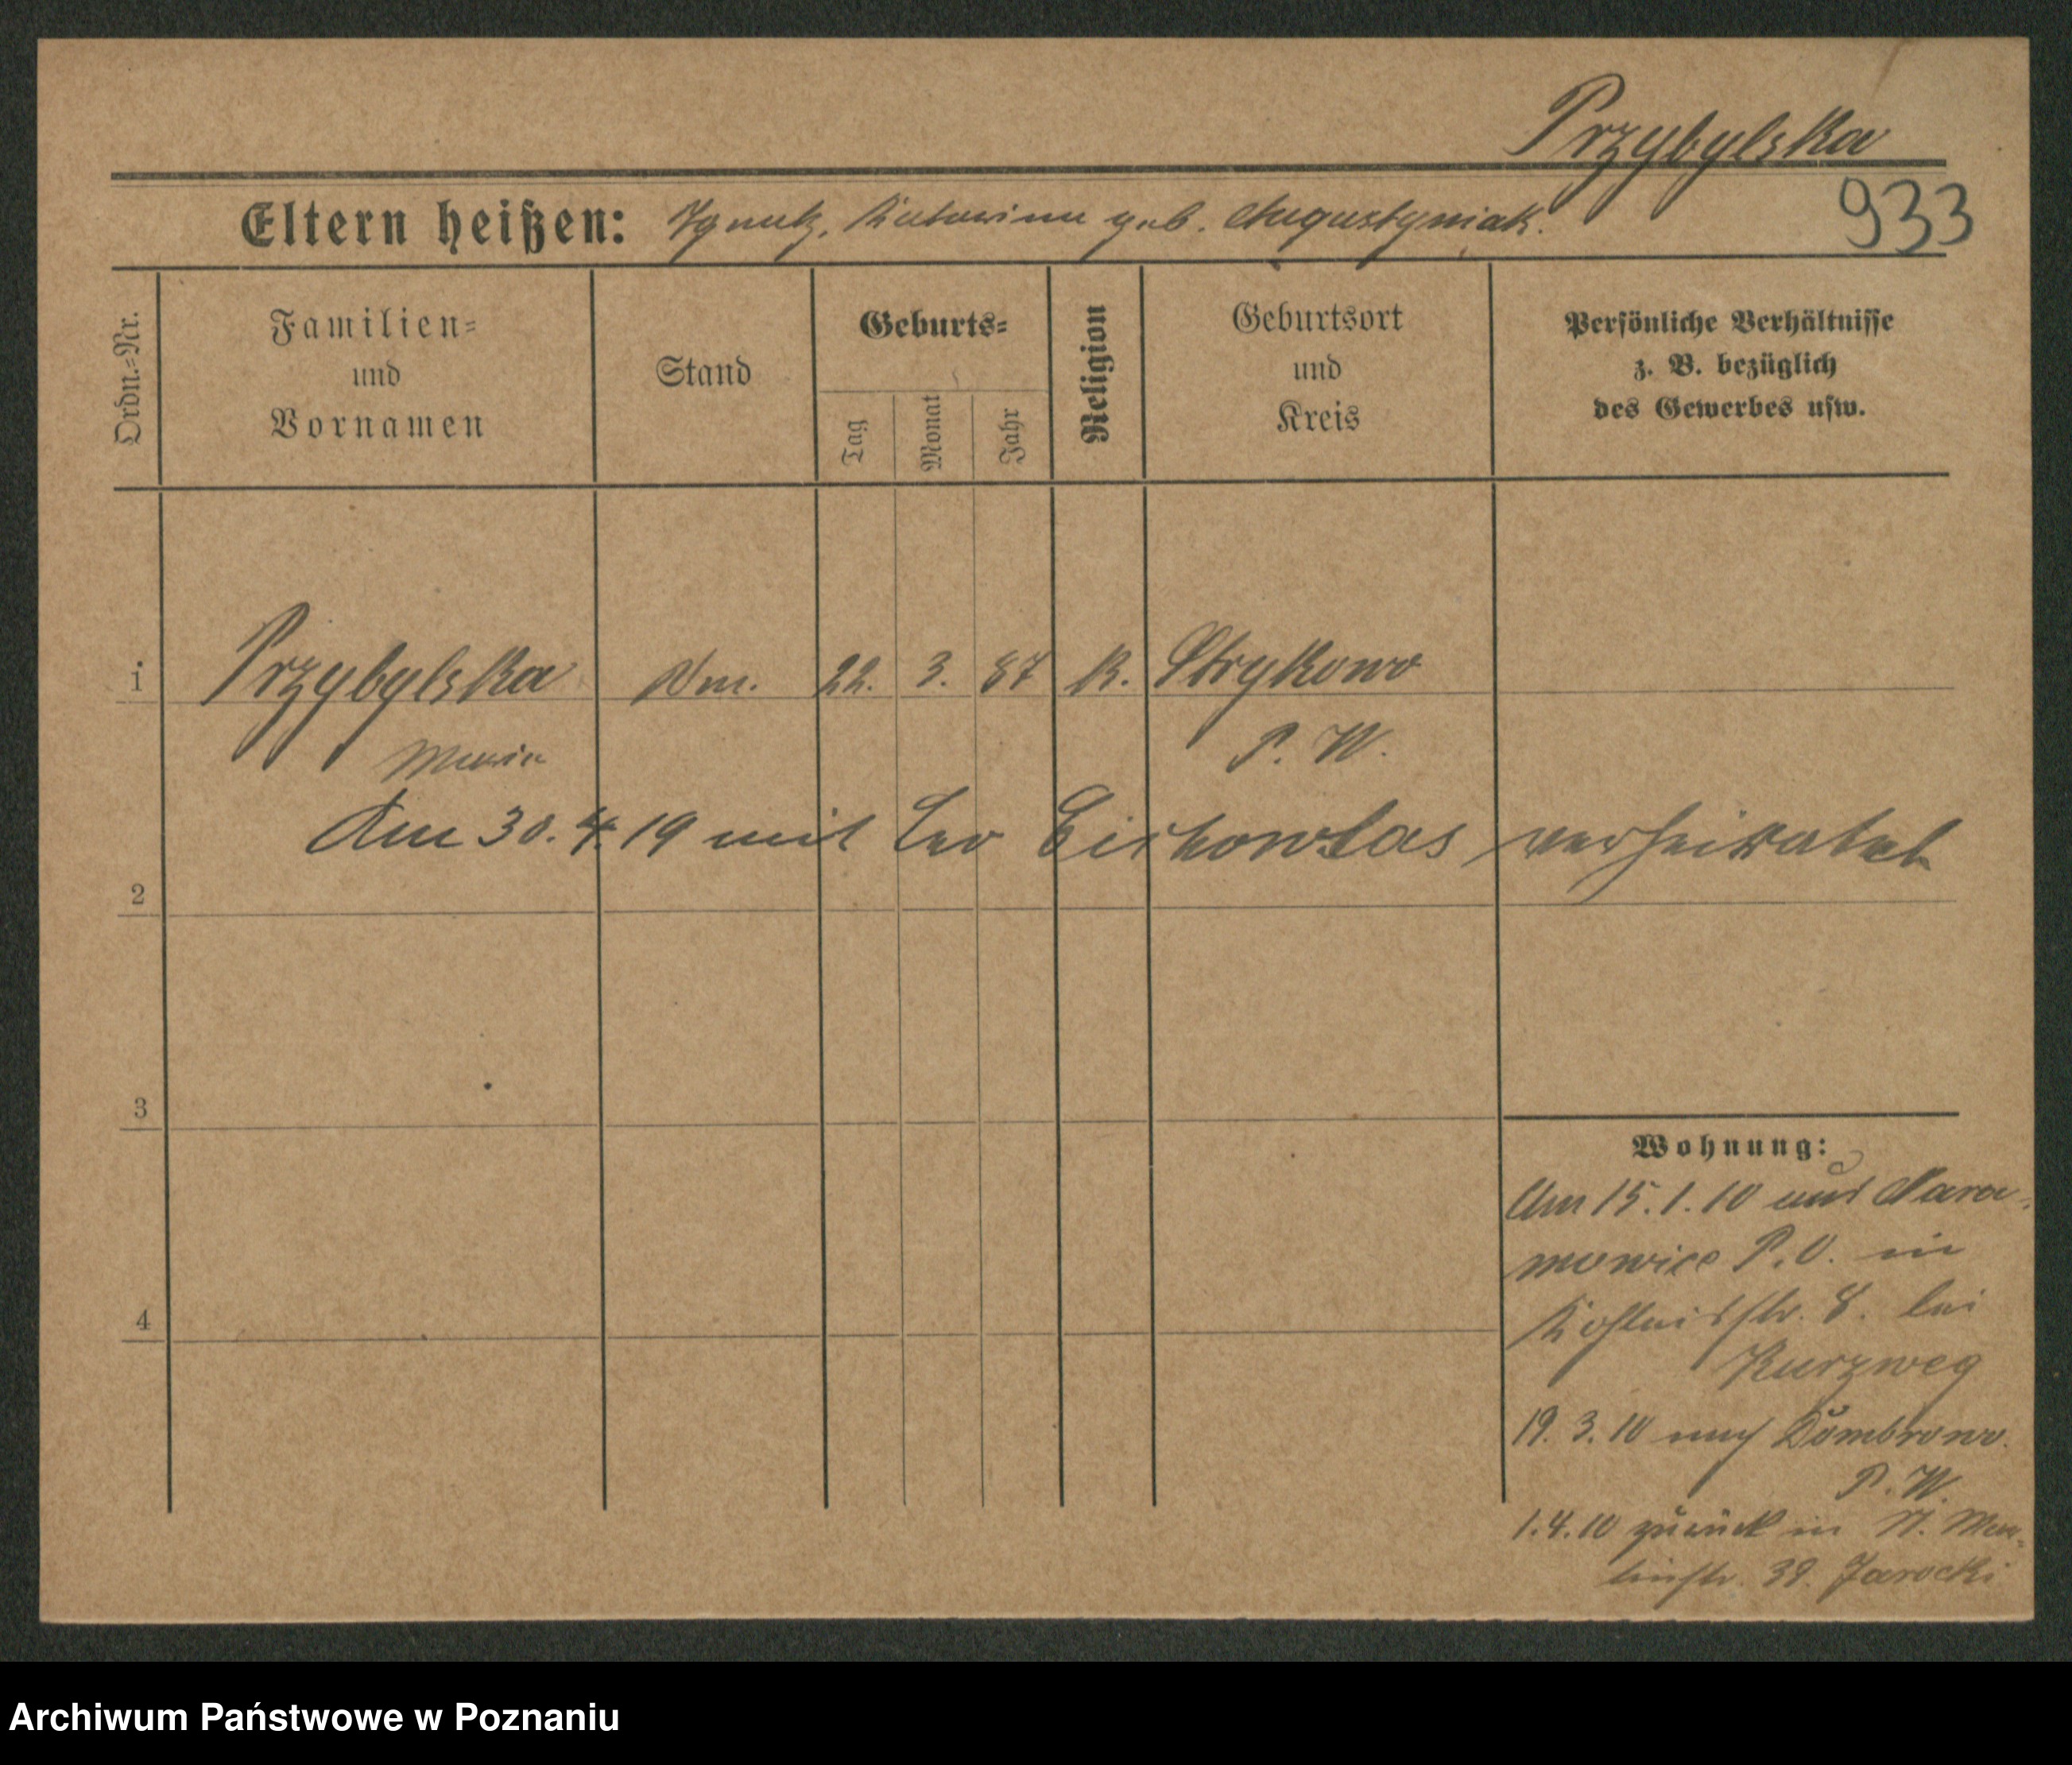 Przybylska
933
Eltern heißen: Ignatz, Katarina geb. Augustyniak.
Ordn.=Nr.
Familien=
und
Vornamen
Stand
Geburts=
Tag
Monat
Jahr
Religion
Geburtsort
und
Kreis
Persönliche Verhältnisse
z. B. bezüglich
des Gewerbes usw.
1 Przybylska 22. 3. 87 K. Strykowo
Maria P. W.
Am 30. 4. 19 mit Leo verheiratet
2
3
4
Wohnung:
Am 15. 1. 10 aus Nara-
mowice P. O. in
8. bei
Kurzweg
19. 3. 10 nach Dombrowo.
P. W.
1. 4. 10 zurück in St. Mar-
tinstr. 39. Jarocki
Archiwum Państwowe w Poznaniu